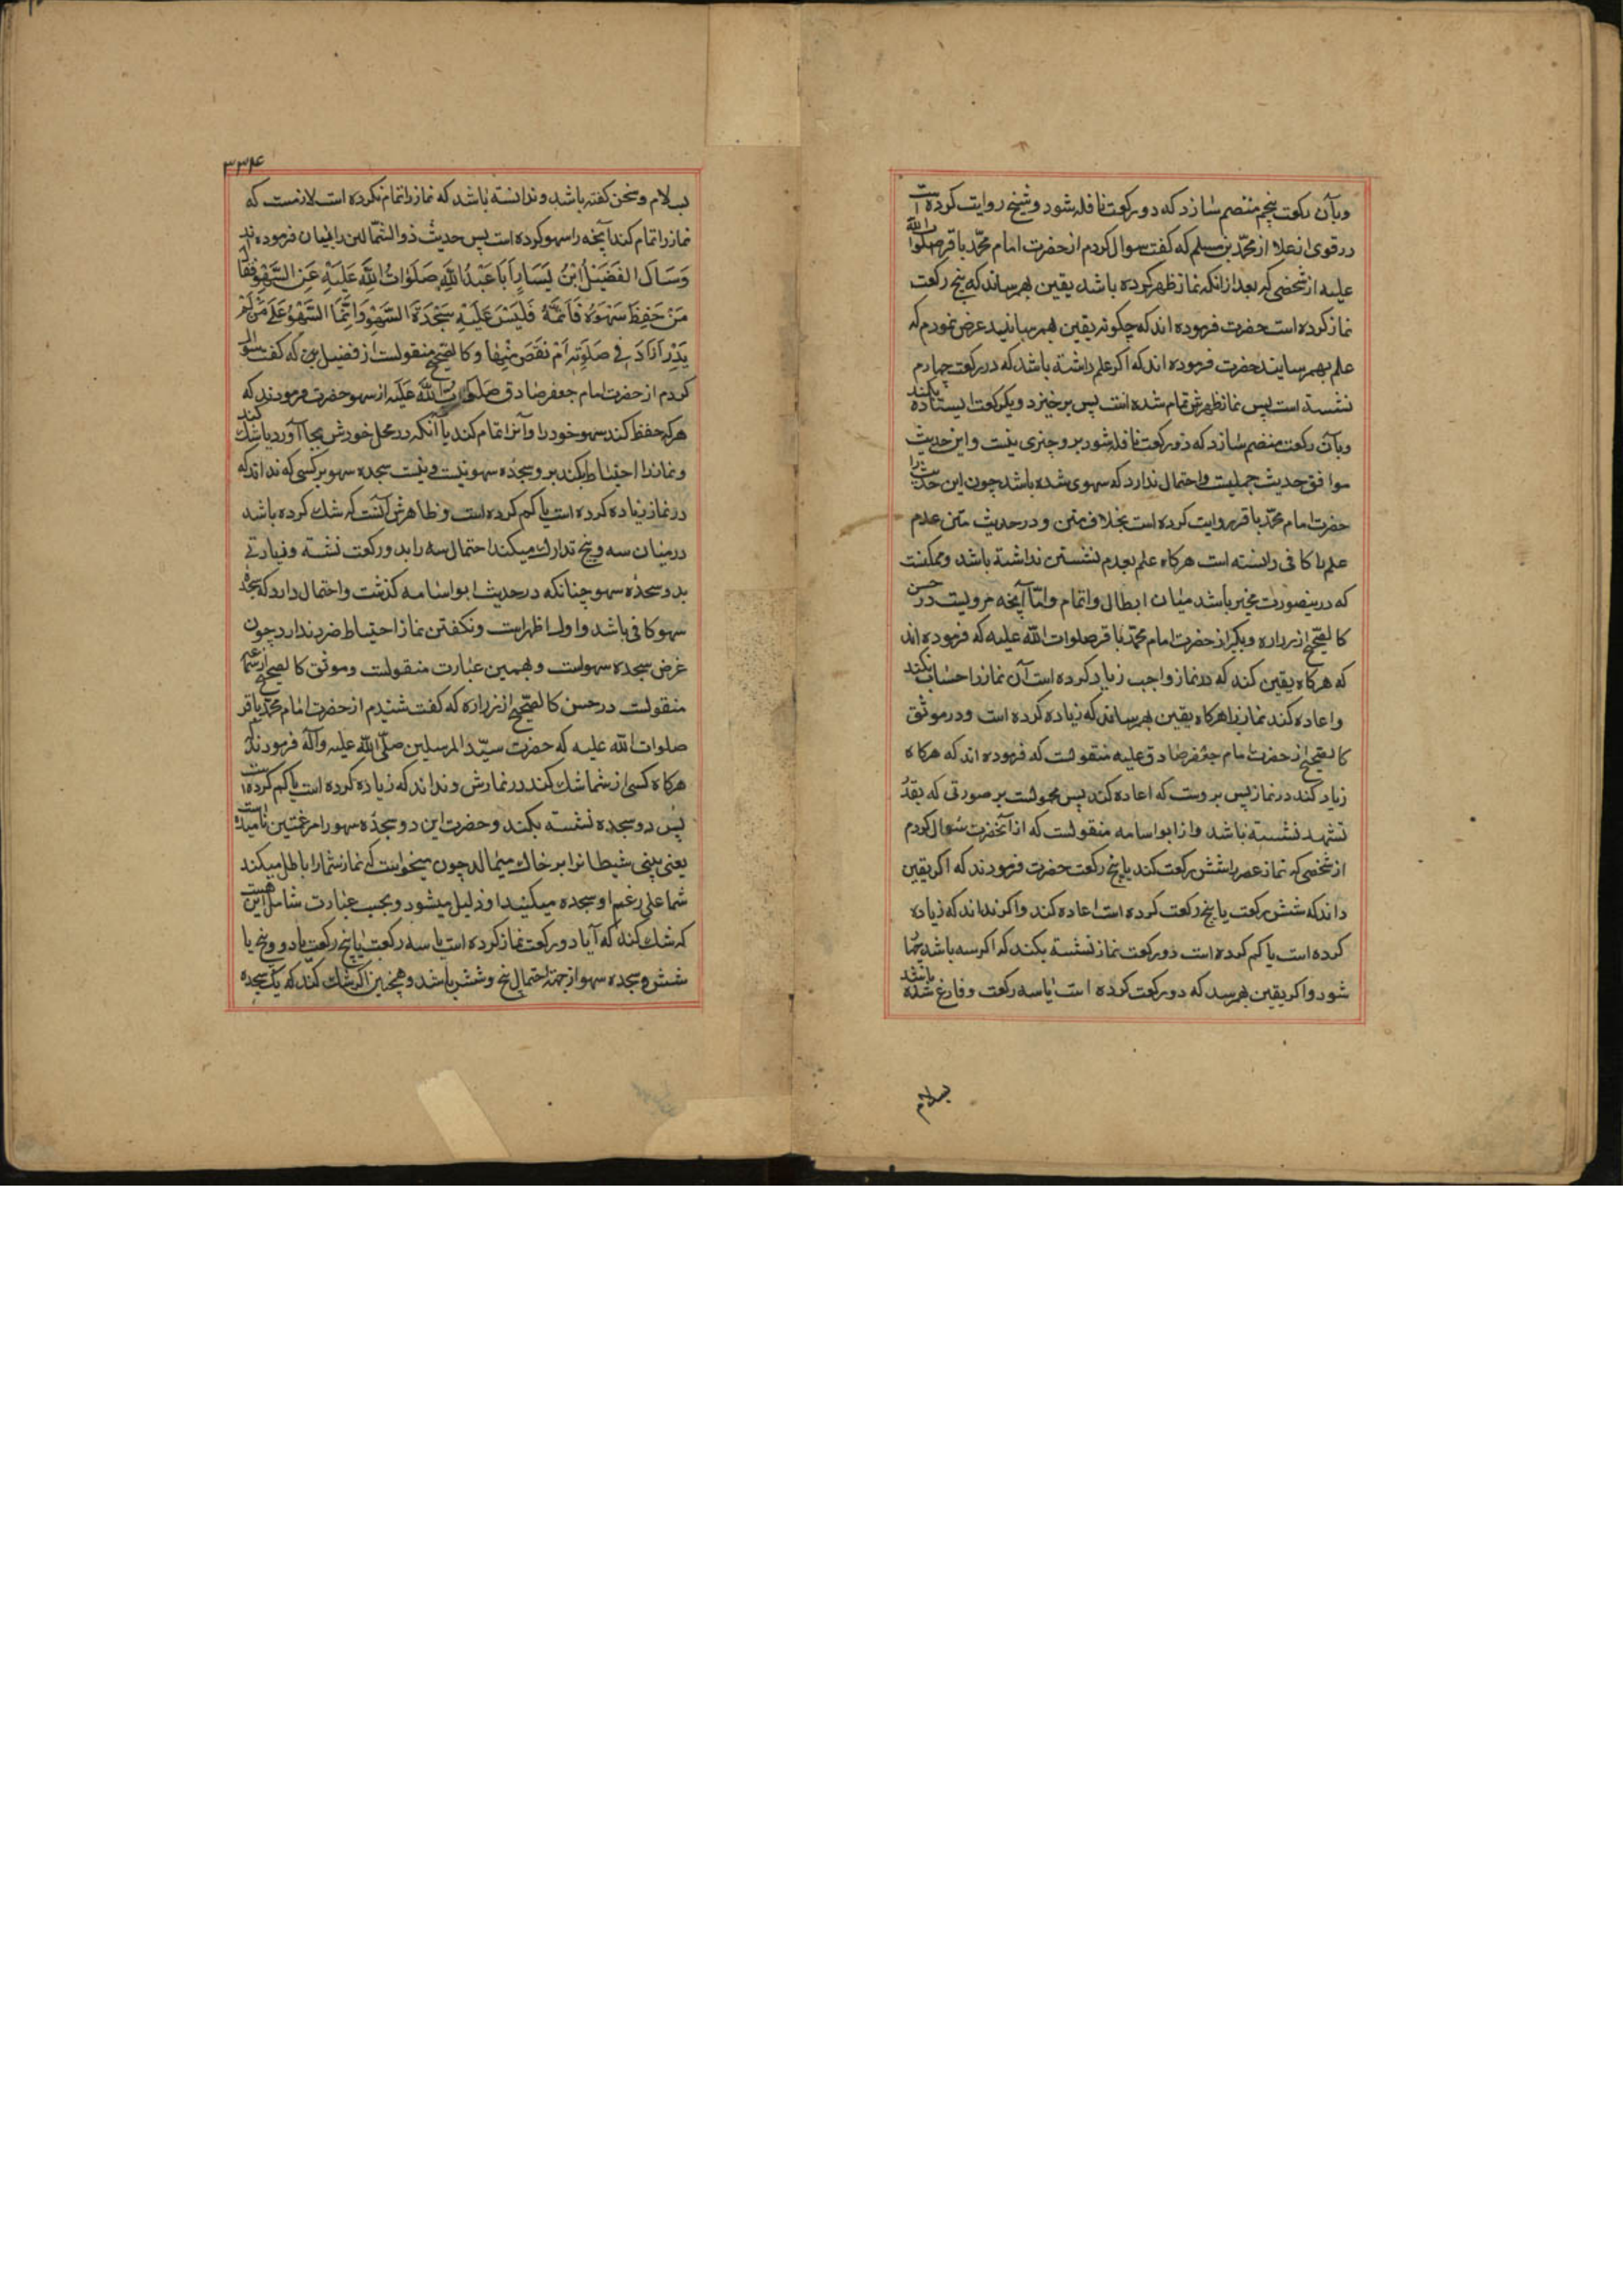 وبآن رکعت پنجم منضم سازد که دو رکعت نافله شود و شیخ روایت کرده است
در قوی از علا از محمّد بن مسلم که گفت سوال کردم از حضرت امام محمّد باقر صلوات الله
علیه از شخصی که بعد از انکه نماز ظهر کرده باشد یقین بهم رساند که پنج رکعت
نماز کرده است حضرت فرموده اند که چگونه یقین بهم رسانید عرض نمودم که
علم بهم رسایند حضرت فرموده اند که اگر علم داشته باشد که در رکعت چهارم
نشسته است پس نماز ظهرش تمام شده است پس بر خیزد و یکرکعت ایستاده بکند
وبآن رکعت منضم سازد که دو رکعت نافله شود بر و چیزی نیست و این حدیث
موافق حدیث جمیلست و احتمال ندارد که سهوی شده باشد چون این حدیث را
حضرت امام محمّد باقر روایت کرده است بخلاف متن و در حدیث متن عدم
علم را کافی دانسته است هرگاه علم بعدم نشستن نداشته باشد و ممکنست
که درینصورت مخیر باشد میان ابطال و اتمام و امّا آنچه مرویست در حسن
کالصّحیح از زراره و بکیر از حضرت امام محمّد باقر صلوات الله علیه که فرموده اند
که هرگاه یقین کند که در نماز واجب زیاد کرده است آن نماز را حساب نکند
و اعاده کند نماز را هرگاه یقین بهم رساند که زیاده کرده است و در موثق
کالصّحیح از حضرت امام جعفر صادق علیه منقولست که فرموده اند که هرگاه
زیاد کند در نماز پس بر وست که اعاده کند پس محمولست بر صورتی که بقدر
تشهد نشسته باشد و از ابو اسامه منقولست که از آنحضرت سوال کردم
از شخصی که نماز عصر را شش رکعت کند یا پنج رکعت حضرت فرمودند که اگر یقین
داند که شش رکعت یا پنج رکعت کرده است اعاده کند و اگر نداند که زیاده
کرده است یا کم کرده است دو رکعت نماز نشسته بکند که اگر سه باشد چهار
شود و اگر یقین بهم رسد که دو رکعت کرده است یا سه رکعت و فارغ شده باشد
بسلام
۳۳۴
بسلام و سخن گفته باشد و ندانسته باشد که نماز را تمام نکرده است لازمست که
نماز را تمام کند آنچه را سهو کرده است پس حدیث ذو الشّمالین را بیان فرموده اند
وَسَاَلَ الفُضَیْلُ ابْنُ یَسَارٍ اَبَا عَبْدِ اللهِ صَلَوَاتُ اللهِ عَلَیْهِ عَنِ السَّهْوِ فَقَالَ
مَنْ حَفِظَ سَهْوَهُ فَاَتَمَّهُ فَلَیْسَ عَلَیْهِ سَجْدَتَا السَّهْوِ وَ اِنَّمَا السَّهْوُ عَلَی مَنْ لَمْ
یَدْرِ اَزَادَ فِی صَلَوتِهِ اَمْ نَقَصَ مِنْهَا و کالصّحیح منقولست از فضیل بن که گفت سوال
کردم از حضرت امام جعفر صادق صلوات الله علیه از سهو حضرت فرمودند که
هر که حفظ کند سهو خود را و آنرا تمام کند یا آنکه در محل خودش بجا آورد یا شک کند
و نماز را احتیاط بکند بر و سجده سهو نیست و نیست سجده سهو بر کسی که نداند که
در نماز زیاده کرده است یا کم کرده است و ظاهرش آنست که شک کرده باشد
در میان سه و پنج تدارک میکند احتمال سه را بدو رکعت نشسته و زیادتی
بدو سجده سهو چنانکه در حدیث ابو اسامه گذشت و احتمال دارد که سجده
سهو کافی باشد و اول اظهر است و نگفتن نماز احتیاط ضرر ندارد چون
غرض سجده سهو است و بهمین عبارت منقولست و موثق کالصحیح از عمار
منقولست در حسن کالصّحیح از زراره که گفت شنیدم از حضرت امام محمّد باقر
صلوات الله علیه که حضرت سیّد المرسلین صلّی الله علیه وآله فرمودند که
هرگاه کسی از شما شک کند در نمازش و نداند که زیاده کرده است یا کم کرده است
پس دو سجده نشسته بکند و حضرت این دو سجده سهو را مرغمتین نامیده است
یعنی بینی شیطانرا بر خاک میمالد چون میخواست که نماز شما را باطل میکند
شما علی رغم او سجده میکنید او ذلیل میشود و بحسب عبارت شامل این هست
که شک کند که آیا دو رکعت نماز کرده است یا سه رکعت یا پنج رکعت یا دو و پنج یا
شش و سجده سهو از جهة احتمال پنج و شش باشد و همچنین اگر شک کند که یک سجده